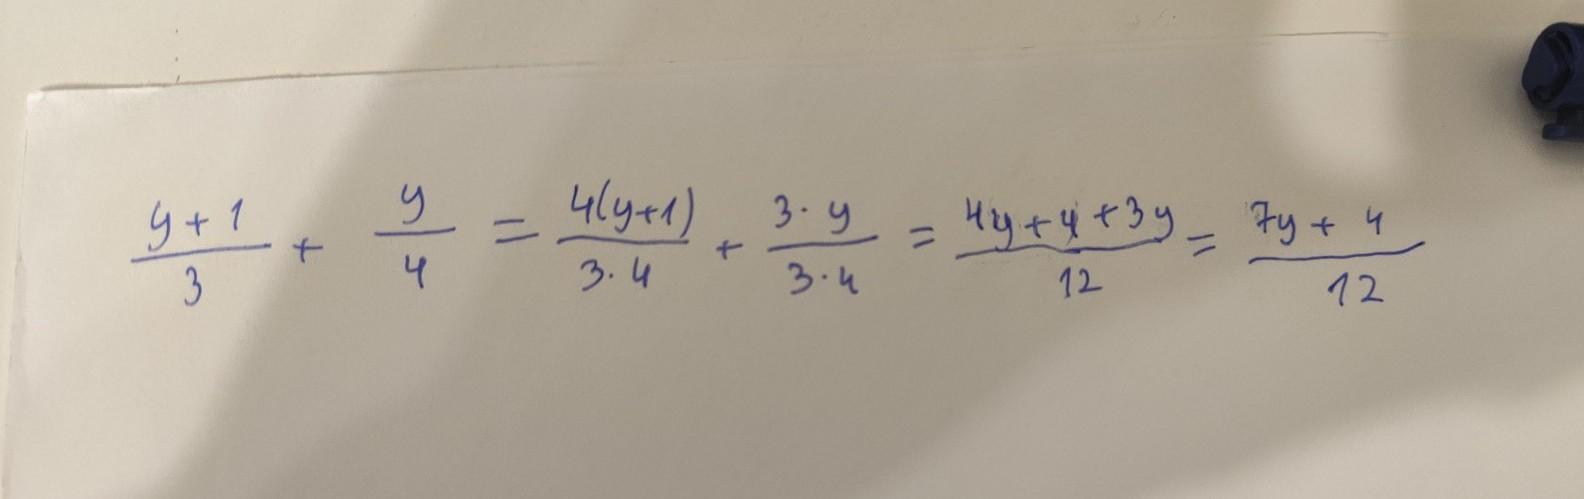 (y + 1)/3 + y/4 = 4(y+1)/(3·4) + (3·y)/(3·4) = (4y+4+3y)/12 = (7y+4)/12